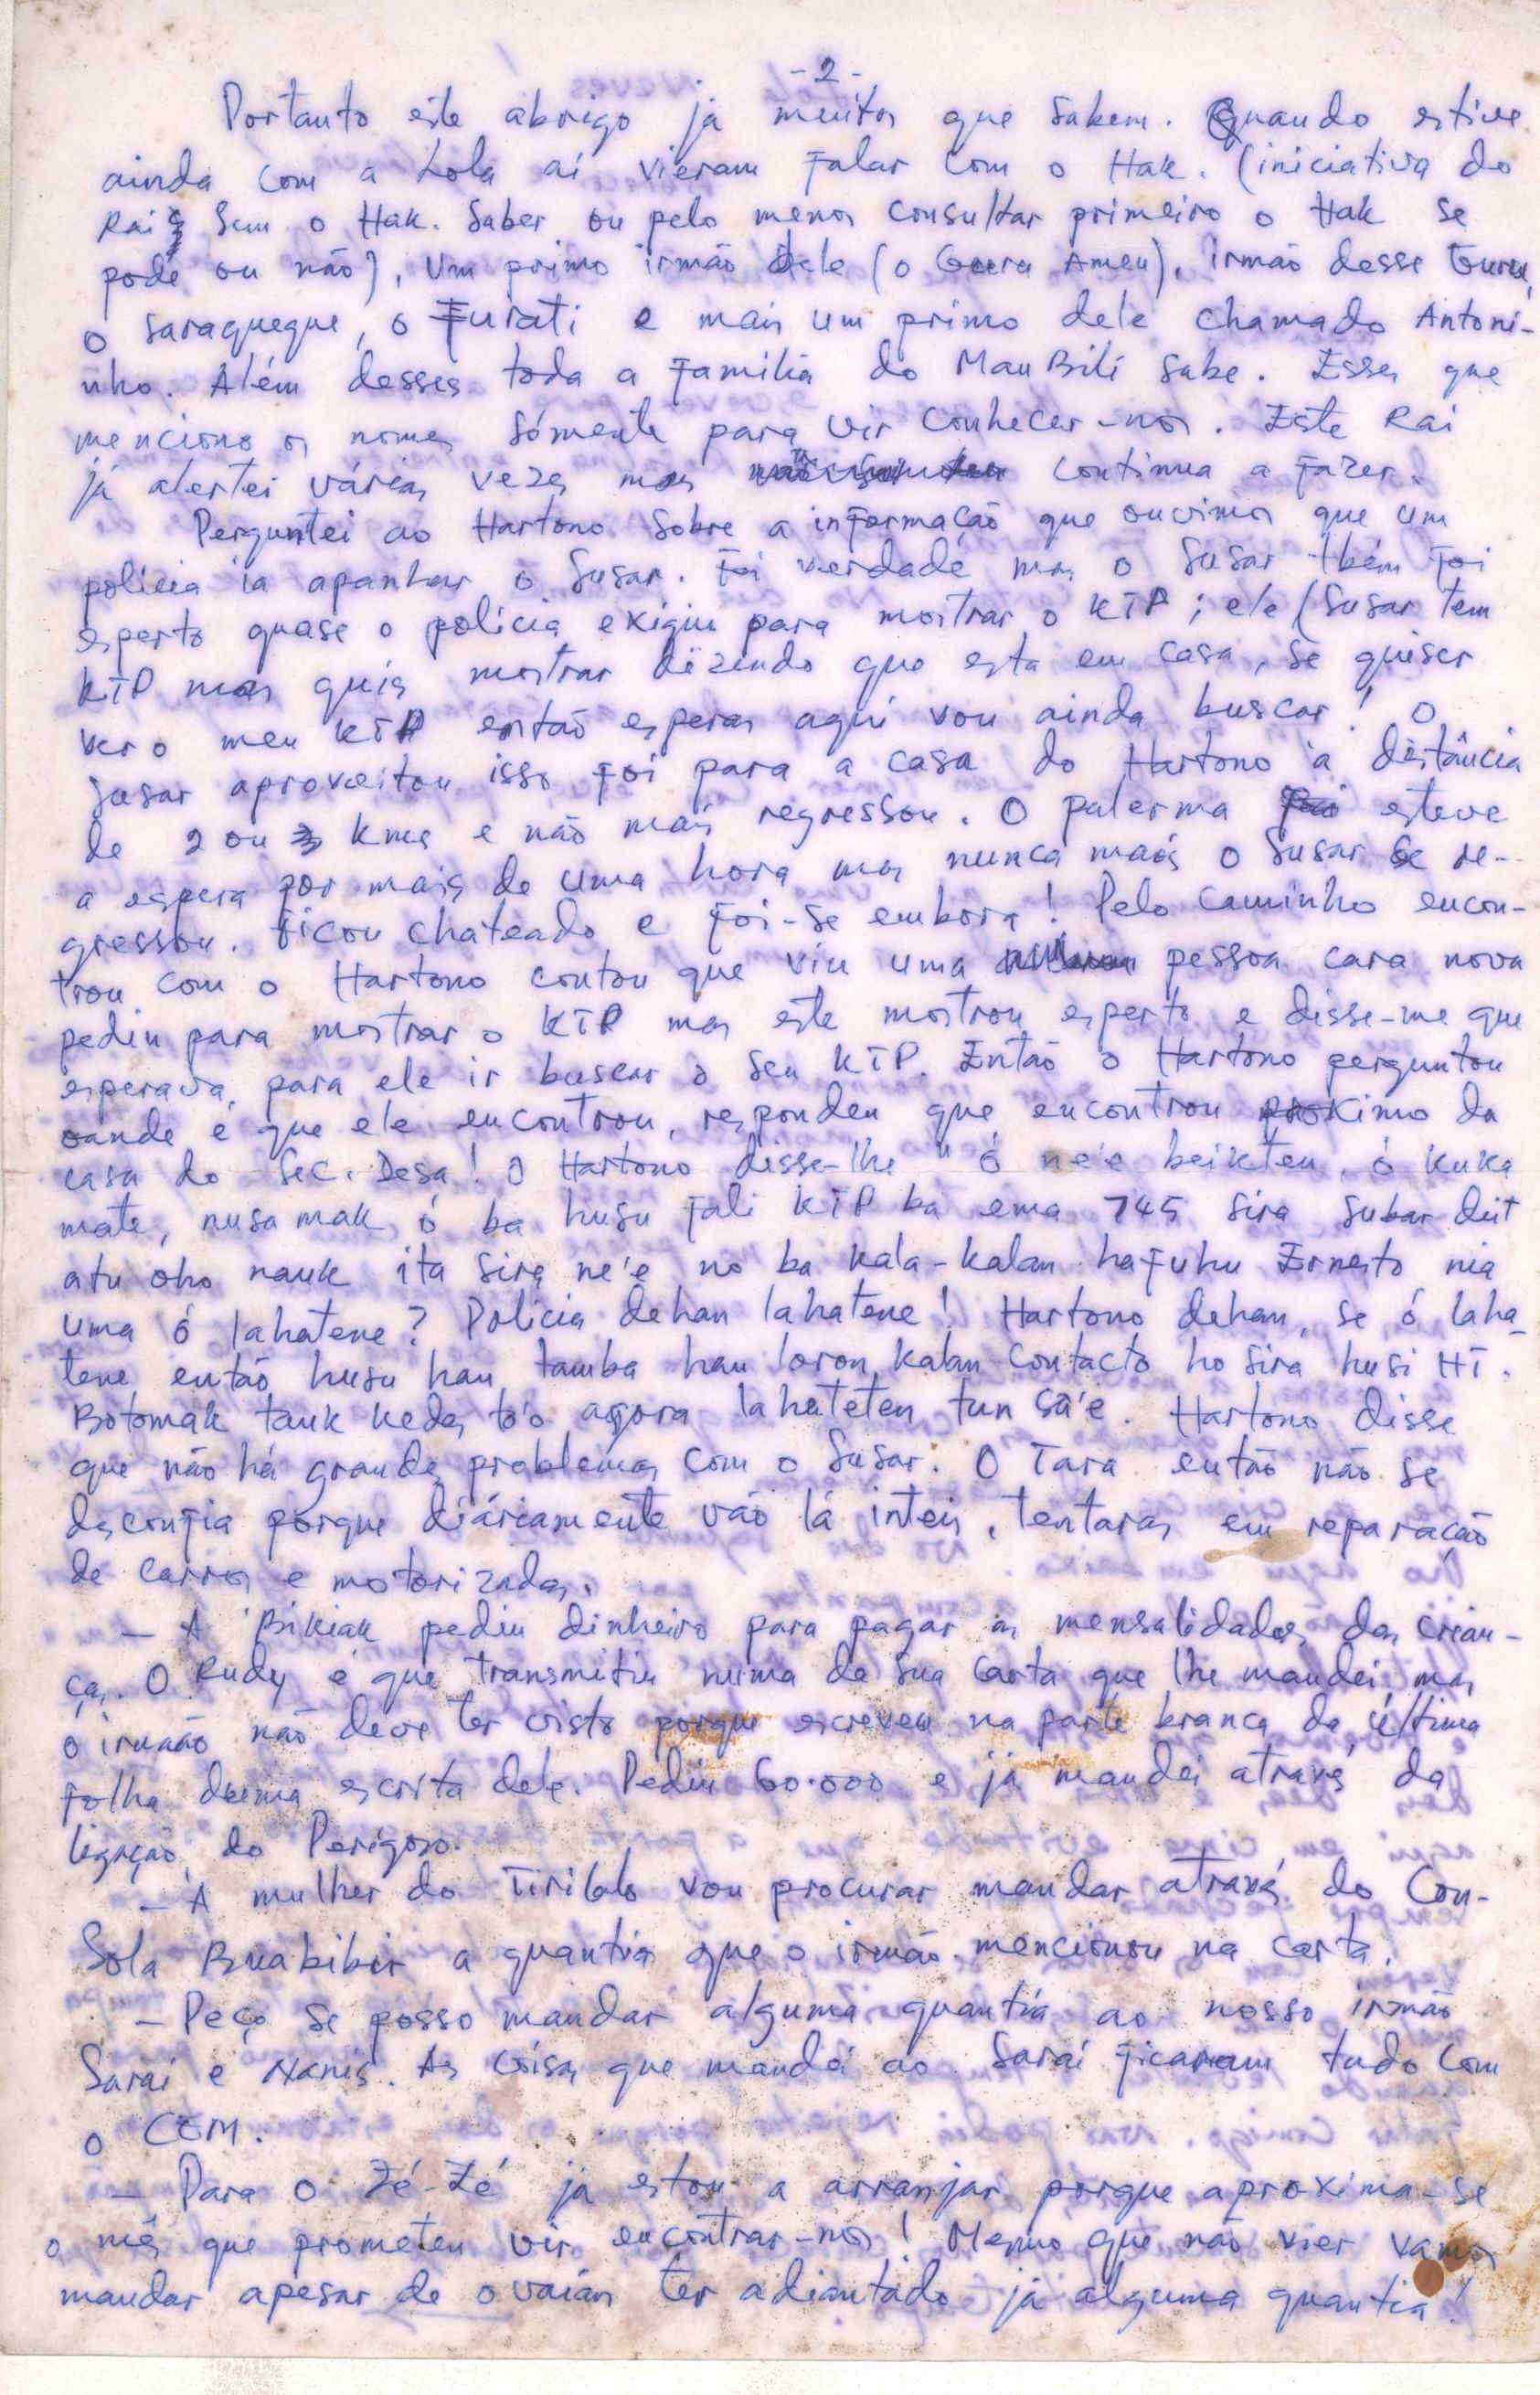 -2-
Portanto este abrigo já muitos que sabem. Quando estive
ainda com a Lola aí vieram falar com o Hak. (iniciativa do
Rai sem o Hak. saber ou pelo menos consultar primeiro o Hak se
pode ou não), um primo irmão dele (o Guru Ameu), irmão desse Guru,
o saraquegue, o Furati e mais um primo dele chamado Antoni-
nho. Além desses toda a família do MauBili sabe. Esses que
menciono os nomes sómente para vir conhecer-nos. Este Rai
já alertei várias vezes mas continua a fazer.
Perguntei ao Hartono sobre a informação que ouvimos que um
policia ia apanhar o Susar. Foi verdade mas o Susar tbém foi
esperto quase o policia exigiu para mostrar o KTP; ele (Susar tem
KTP mas quis mostrar dizendo que esta em casa, se quiser
ver o meu KTP então esperas aqui vou ainda buscar! O
Susar aproveitou isso foi para a casa do Hartono à distância
de 2 ou 3 kms e não mais regressou. O palerma esteve
a espera por mais de uma hora mas nunca mais o Susar se re-
gressou. Ficou chateado e foi-se embora! Pelo caminho encon-
trou com o Hartono contou que viu uma pessoa cara nova
pediu para mostrar o KTP mas este mostrou esperto e disse-me que
esperava, para ele ir buscar o seu KTP. Então o Hartono perguntou
oande é que ele encontrou, respondeu que encontrou proximo da
casa do Sec. Desa! O Hartono disse-lhe "ó ne'e beikten, ó kuka
mate, nusa mak ó ba husu fali KTP ba ema 745 sira subar deit
atu oho nauk ita sira ne'e no ba kala-kalan hafuhu Ernesto nia
uma ó lahatene? Policia dehan lahatene! Hartono dehan, se ó laha-
tene então husu hau tamba hau loron kalan contacto ho sira husi HT.
Botomak tauk kedas to'o agora lahateten tun sa'e. Hartono disse
que não há grandes problemas com o Susar. O Tara então não se
desconfia porque diáriamente vão lá inteis, tentaras em reparação
de carros e motorizadas.
- A Bikiak pediu dinheiro para pagar as mensalidades das crian-
ças. O Rudy é que transmitiu numa de sua carta que lhe mandei mas
o irmão não deve ter visto porque escreveu na parte branca da última
folha duma escrita dele. Pediu 60.000 e já mandei através da
ligação do Perigoso.
- A mulher do Tirilolo vou procurar mandar através do Con-
sola Buabibir a quantia que o irmão mencionou na carta.
- Peço se posso mandar alguma quantia ao nosso irmão
Sarai e Nanis. As coisas que mandei ao Sarai ficaram tudo com
o COM.
- Para o Zé-Zé já estou a arranjar porque aproxima-se
o mês que prometeu vir encontrar-nos! Mesmo que não vier vamos
mandar apesar de o vaian ter adiantado já alguma quantia!